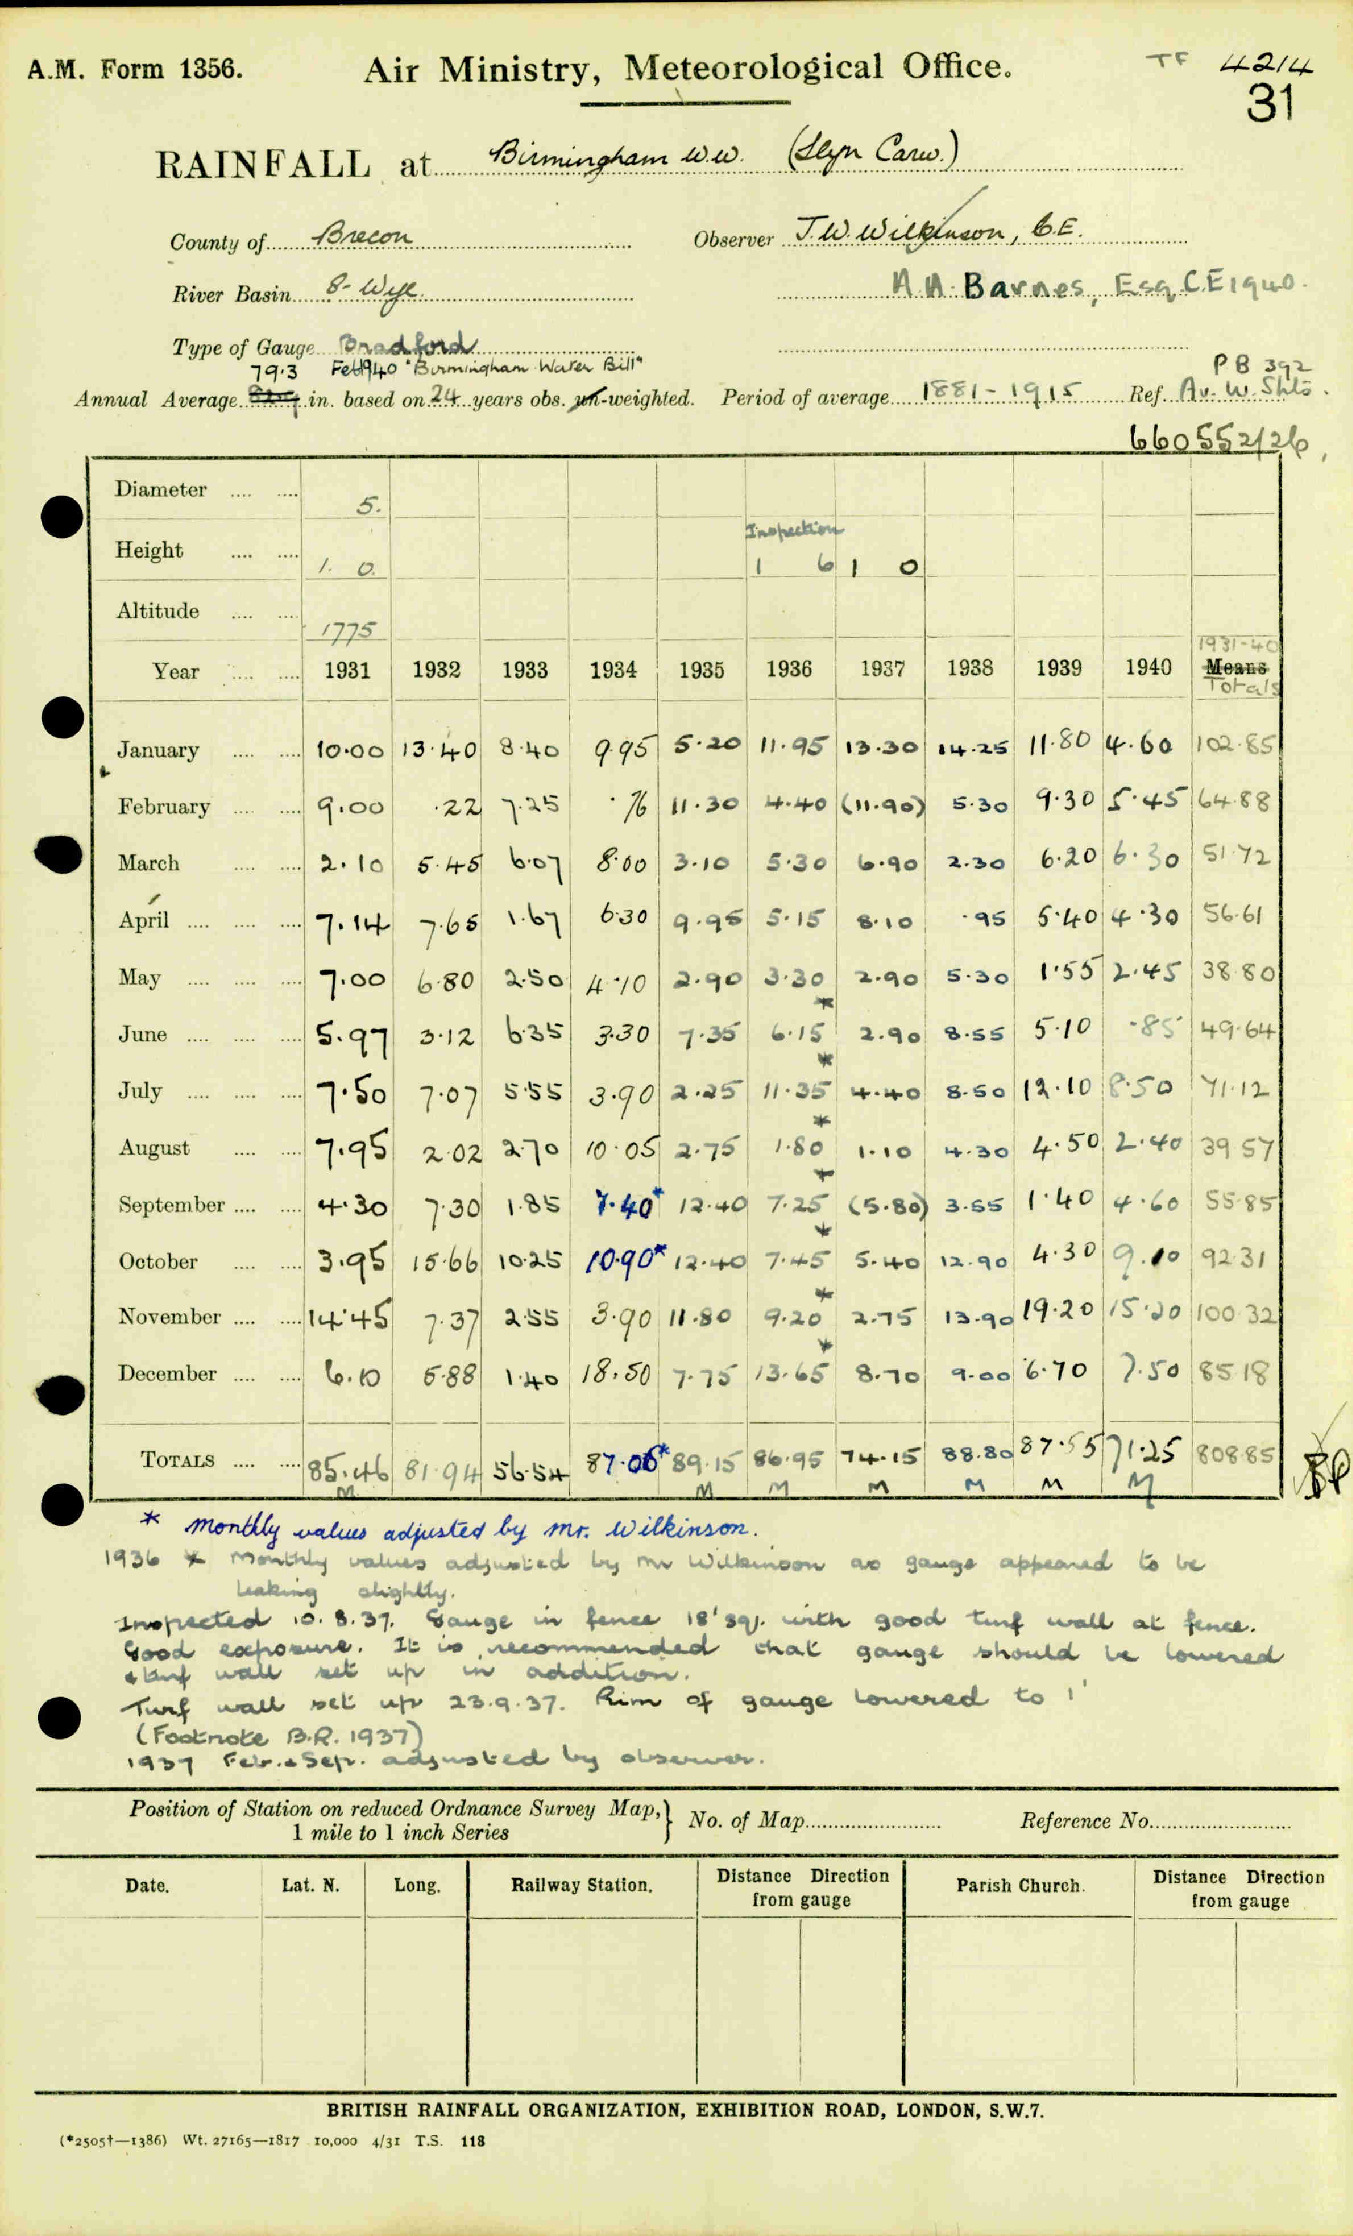 A.M. Form 1356.
Air Ministry, Meteorological Office.
TF 4214
31
RAINFALL at Birmingham W.W. (Llyn Carw.)
County of Brecon
Observer J.W. Wilkinson, C.E.
River Basin 8- Wye.
A.A. Barnes, Esq C.E 1940.
Type of Gauge Bradford
79.3 Feb 1940 "Birmingham Water Bill"
PB 392
Annual Average in. based on 24 years obs. un-weighted. Period of average 1881-1915 Ref. Av. W. Shts.
660552/26
Diameter .... .... 5.
Inspection
Height .... .... 1. 0. 1 6 1 0
Altitude .... .... 1775
1931-40
Year .... .... 1931 1932 1933 1934 1935 1936 1937 1938 1939 1940 Means
Totals
January .... .... 10.00 13.40 8.40 9.95 5.20 11.95 13.30 14.25 11.80 4.60 102.85
February .... .... 9.00 .22 7.25 .76 11.30 4.40 (11.90) 5.30 9.30 5.45 64.88
March .... .... 2.10 5.45 6.07 8.00 3.10 5.30 6.90 2.30 6.20 6.30 51.72
April .... .... .... 7.14 7.65 1.67 6.30 9.95 5.15 8.10 .95 5.40 4.30 56.61
May .... .... .... 7.00 6.80 2.50 4.10 2.90 3.30 2.90 5.30 1.55 2.45 38.80
June .... .... .... 5.97 3.12 6.35 3.30 7.35 6.15* 2.90 8.55 5.10 .85 49.64
July .... .... .... 7.50 7.07 5.55 3.90 2.25 11.35* 4.40 8.50 12.10 8.50 71.12
August .... .... 7.95 2.02 2.70 10.05 2.75 1.80* 1.10 4.30 4.50 2.40 39.57
September .... .... 4.30 7.30 1.85 7.40* 12.40 7.25* (5.80) 3.55 1.40 4.60 55.85
October .... .... 3.95 15.66 10.25 10.90* 12.40 7.45* 5.40 12.90 4.30 9.10 92.31
November .... .... 14.45 7.37 2.55 3.90 11.80 9.20* 2.75 13.90 19.20 15.20 100.32
December .... .... 6.10 5.88 1.40 18.50 7.75 13.65* 8.70 9.00 6.70 7.50 85.18
TOTALS .... .... 85.46 81.94 56.54 87.06* 89.15 86.95 74.15 88.80 87.55 71.25 808.85
M M M M M M M
* Monthly values adjusted by Mr. Wilkinson.
1936 * Monthly values adjusted by Mr Wilkinson as gauge appeared to be
leaking slightly.
Inspected 10.8.37. Gauge in fence 18' sq. with good turf wall at fence.
Good exposure. It is recommended that gauge should be lowered
& turf wall set up in addition.
Turf wall set up 23.9.37. Rim of gauge lowered to 1'
(Footnote B.R. 1937)
1937 Feb. & Sep. adjusted by observer.
Position of Station on reduced Ordnance Survey Map,
1 mile to 1 inch Series } No. of Map Reference No.
Date. Lat. N. Long. Railway Station. Distance Direction from gauge Parish Church. Distance Direction from gauge
BRITISH RAINFALL ORGANIZATION, EXHIBITION ROAD, LONDON, S.W.7.
(*2505†—1386) Wt. 27165—1817 10,000 4/31 T.S. 118